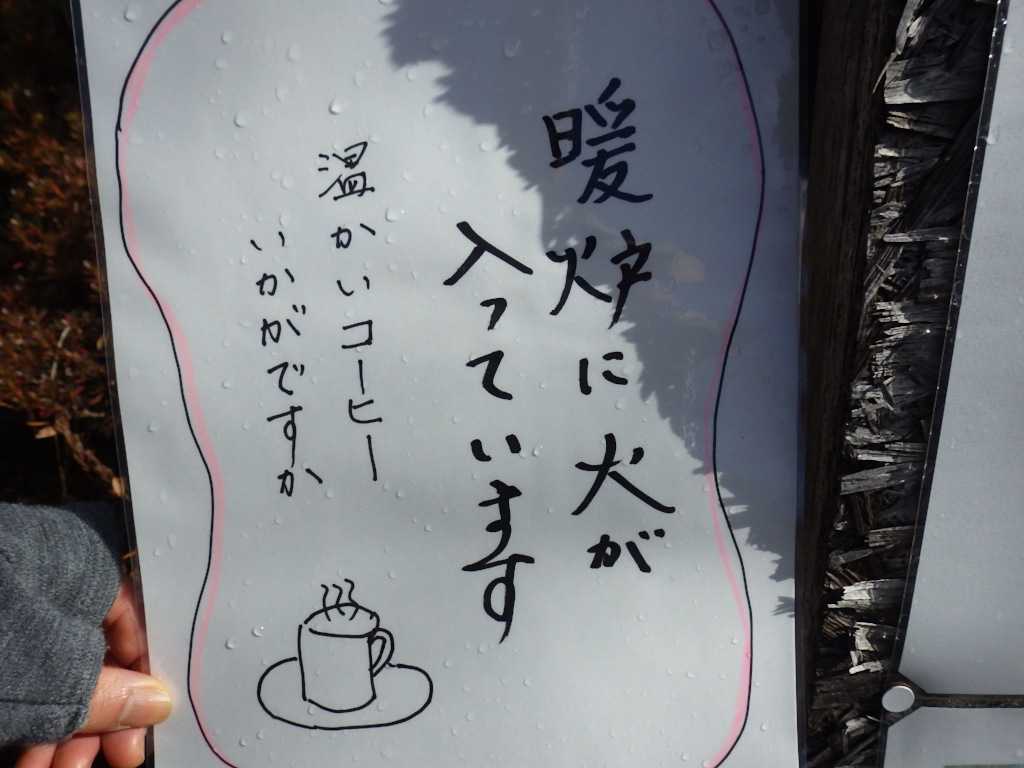 暖炉に犬が
入っています
温かいコーヒー
いかがですか